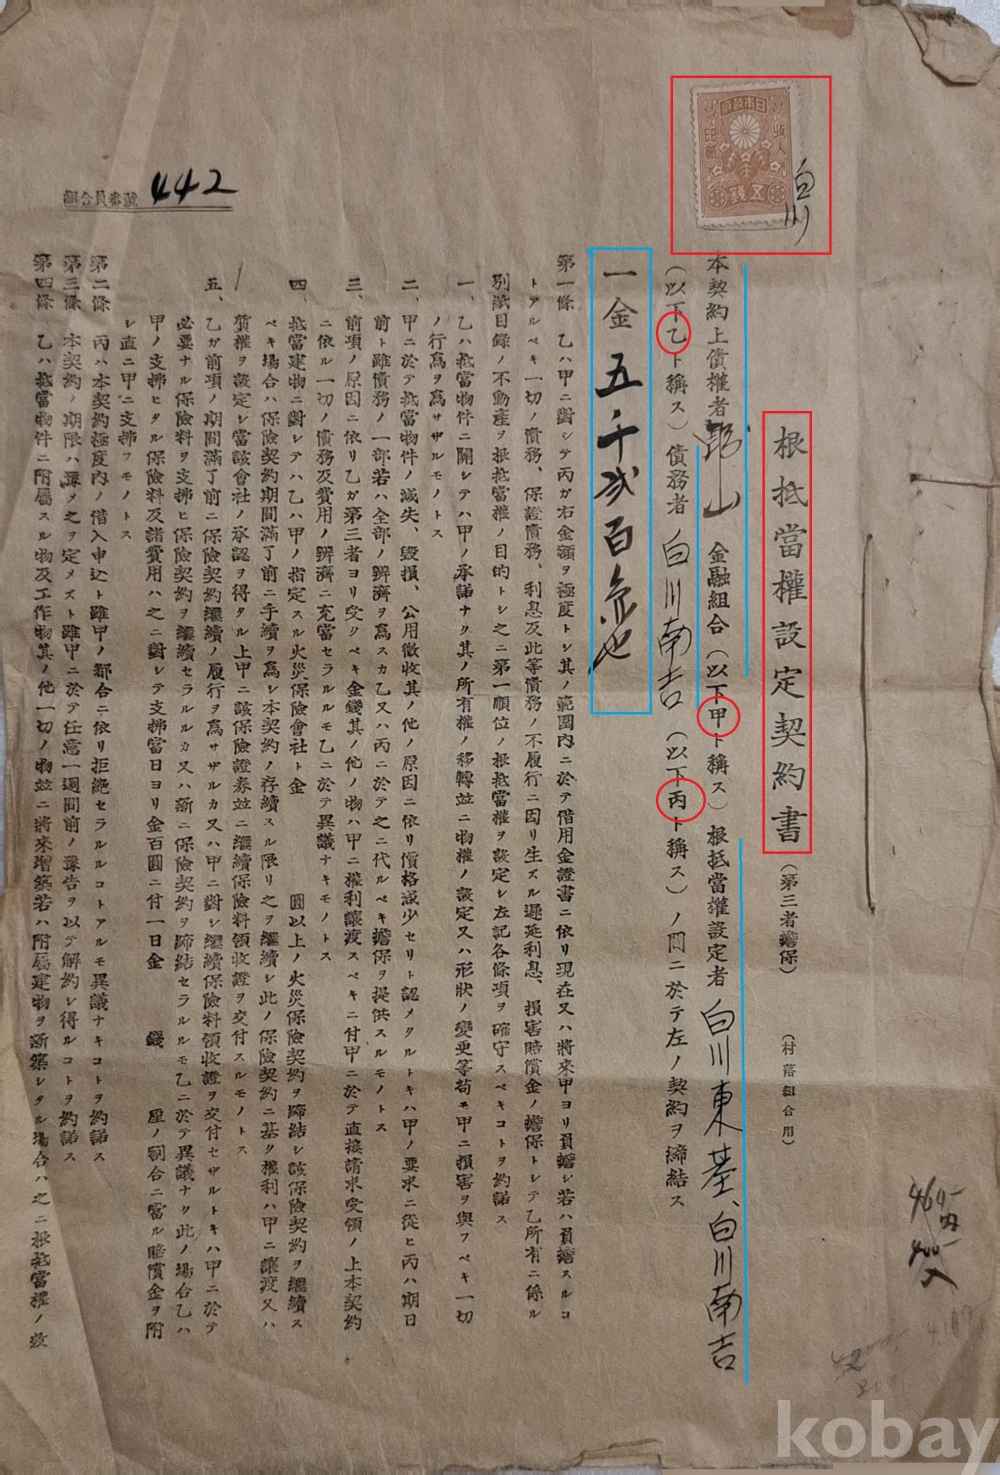 根抵當權設定契約書(第三者擔保)(村落組合用)
日本政府
收入
印紙
五錢
白川
本契約上債權者 山 金融組合(以下甲ト稱ス)根抵當權設定者 白川東基、白川南吉
(以下乙ト稱ス)債務者 白川南吉(以下丙ト稱ス)ノ間ニ於テ左ノ契約ヲ締結ス
一金五千弐百也
第一條 乙ハ甲ニ對シテ丙ガ右金額ヲ極度トシ其ノ範圍内ニ於テ借用金證書ニ依リ現在又ハ將來甲ヨリ負擔シ若ハ負擔スルコ
トアルベキ一切ノ債務、保證債務、利息及此等債務ノ不履行ニ因リ生ズル遲延利息、損害賠償金ノ擔保トシテ乙所有ニ係ル
別紙目錄ノ不動產ヲ根抵當權ノ目的トシ之ニ第一順位ノ根抵當權ヲ設定シ左記各條項ヲ確守スベキコトヲ約諾ス
一、乙ハ抵當物件ニ關シテハ甲ノ承諾ナク其ノ所有權ノ移轉並ニ物權ノ設定又ハ形狀ノ變更等苟モ甲ニ損害ヲ與フベキ一切
ノ行爲ヲ爲サザルモノトス
二、甲ニ於テ抵當物件ノ滅失、毀損、公用徵收其ノ他ノ原因ニ依リ價格減少セリト認メタルトキハ甲ノ要求ニ從ヒ丙ハ期日
前ト雖債務ノ一部若ハ全部ノ辨濟ヲ爲スカ乙又ハ丙ニ於テ之ニ代ルベキ擔保ヲ提供スルモノトス
三、前項ノ原因ニ依リ乙ガ第三者ヨリ受クベキ金錢其ノ他ノ物ハ甲ニ權利讓渡スベキニ付甲ニ於テ直接請求受領ノ上本契約
ニ依ル一切ノ債務及費用ノ辨濟ニ充當セラルルモ乙ニ於テ異議ナキモノトス
四、抵當建物ニ對シテハ乙ハ甲ノ指定スル火災保險會社ト金 圓以上ノ火災保險契約ヲ締結シ該保險契約ヲ繼續ス
ベキ場合ハ保險契約期間滿了前ニ手續ヲ爲シ本契約ノ存續スル限リ之ヲ繼續シ此ノ保險契約ニ基ク權利ハ甲ニ讓渡又ハ
質權ヲ設定シ當該會社ノ承認ヲ得タル上甲ニ該保險證券並ニ繼續保險料領收證ヲ交付スルモノトス
五、乙ガ前項ノ期間滿了前ニ保險契約繼續ノ履行ヲ爲サザルカ又ハ甲ニ對シ繼續保險料領收證ヲ交付セザルトキハ甲ニ於テ
必要ナル保險料ヲ支拂ヒ保險契約ヲ繼續セラルルカ又ハ新ニ保險契約ヲ締結セラルルモ乙ニ於テ異議ナク此ノ場合乙ハ
甲ノ支拂ヒタル保險料及諸費用ハ之ニ對シテ支拂當日ヨリ金百圓ニ付一日金 錢 厘ノ割合ニ當ル賠償金ヲ附
シ直ニ甲ニ支拂フモノトス
第二條 丙ハ本契約極度内ノ借入申込ト雖甲ノ都合ニ依リ拒絕セラルルコトアルモ異議ナキコトヲ約諾ス
第三條 本契約ノ期限ハ豫メ之ヲ定メズト雖甲ニ於テ任意一週間前ノ豫告ヲ以テ解約シ得ルコトヲ約諾ス
第四條 乙ハ抵當物件ニ附屬スル物及工作物其ノ他一切ノ物並ニ將來增築若ハ附屬建物ヲ新築シタル場合ハ之ニ根抵當權ノ效
組合員番號 442
kobay